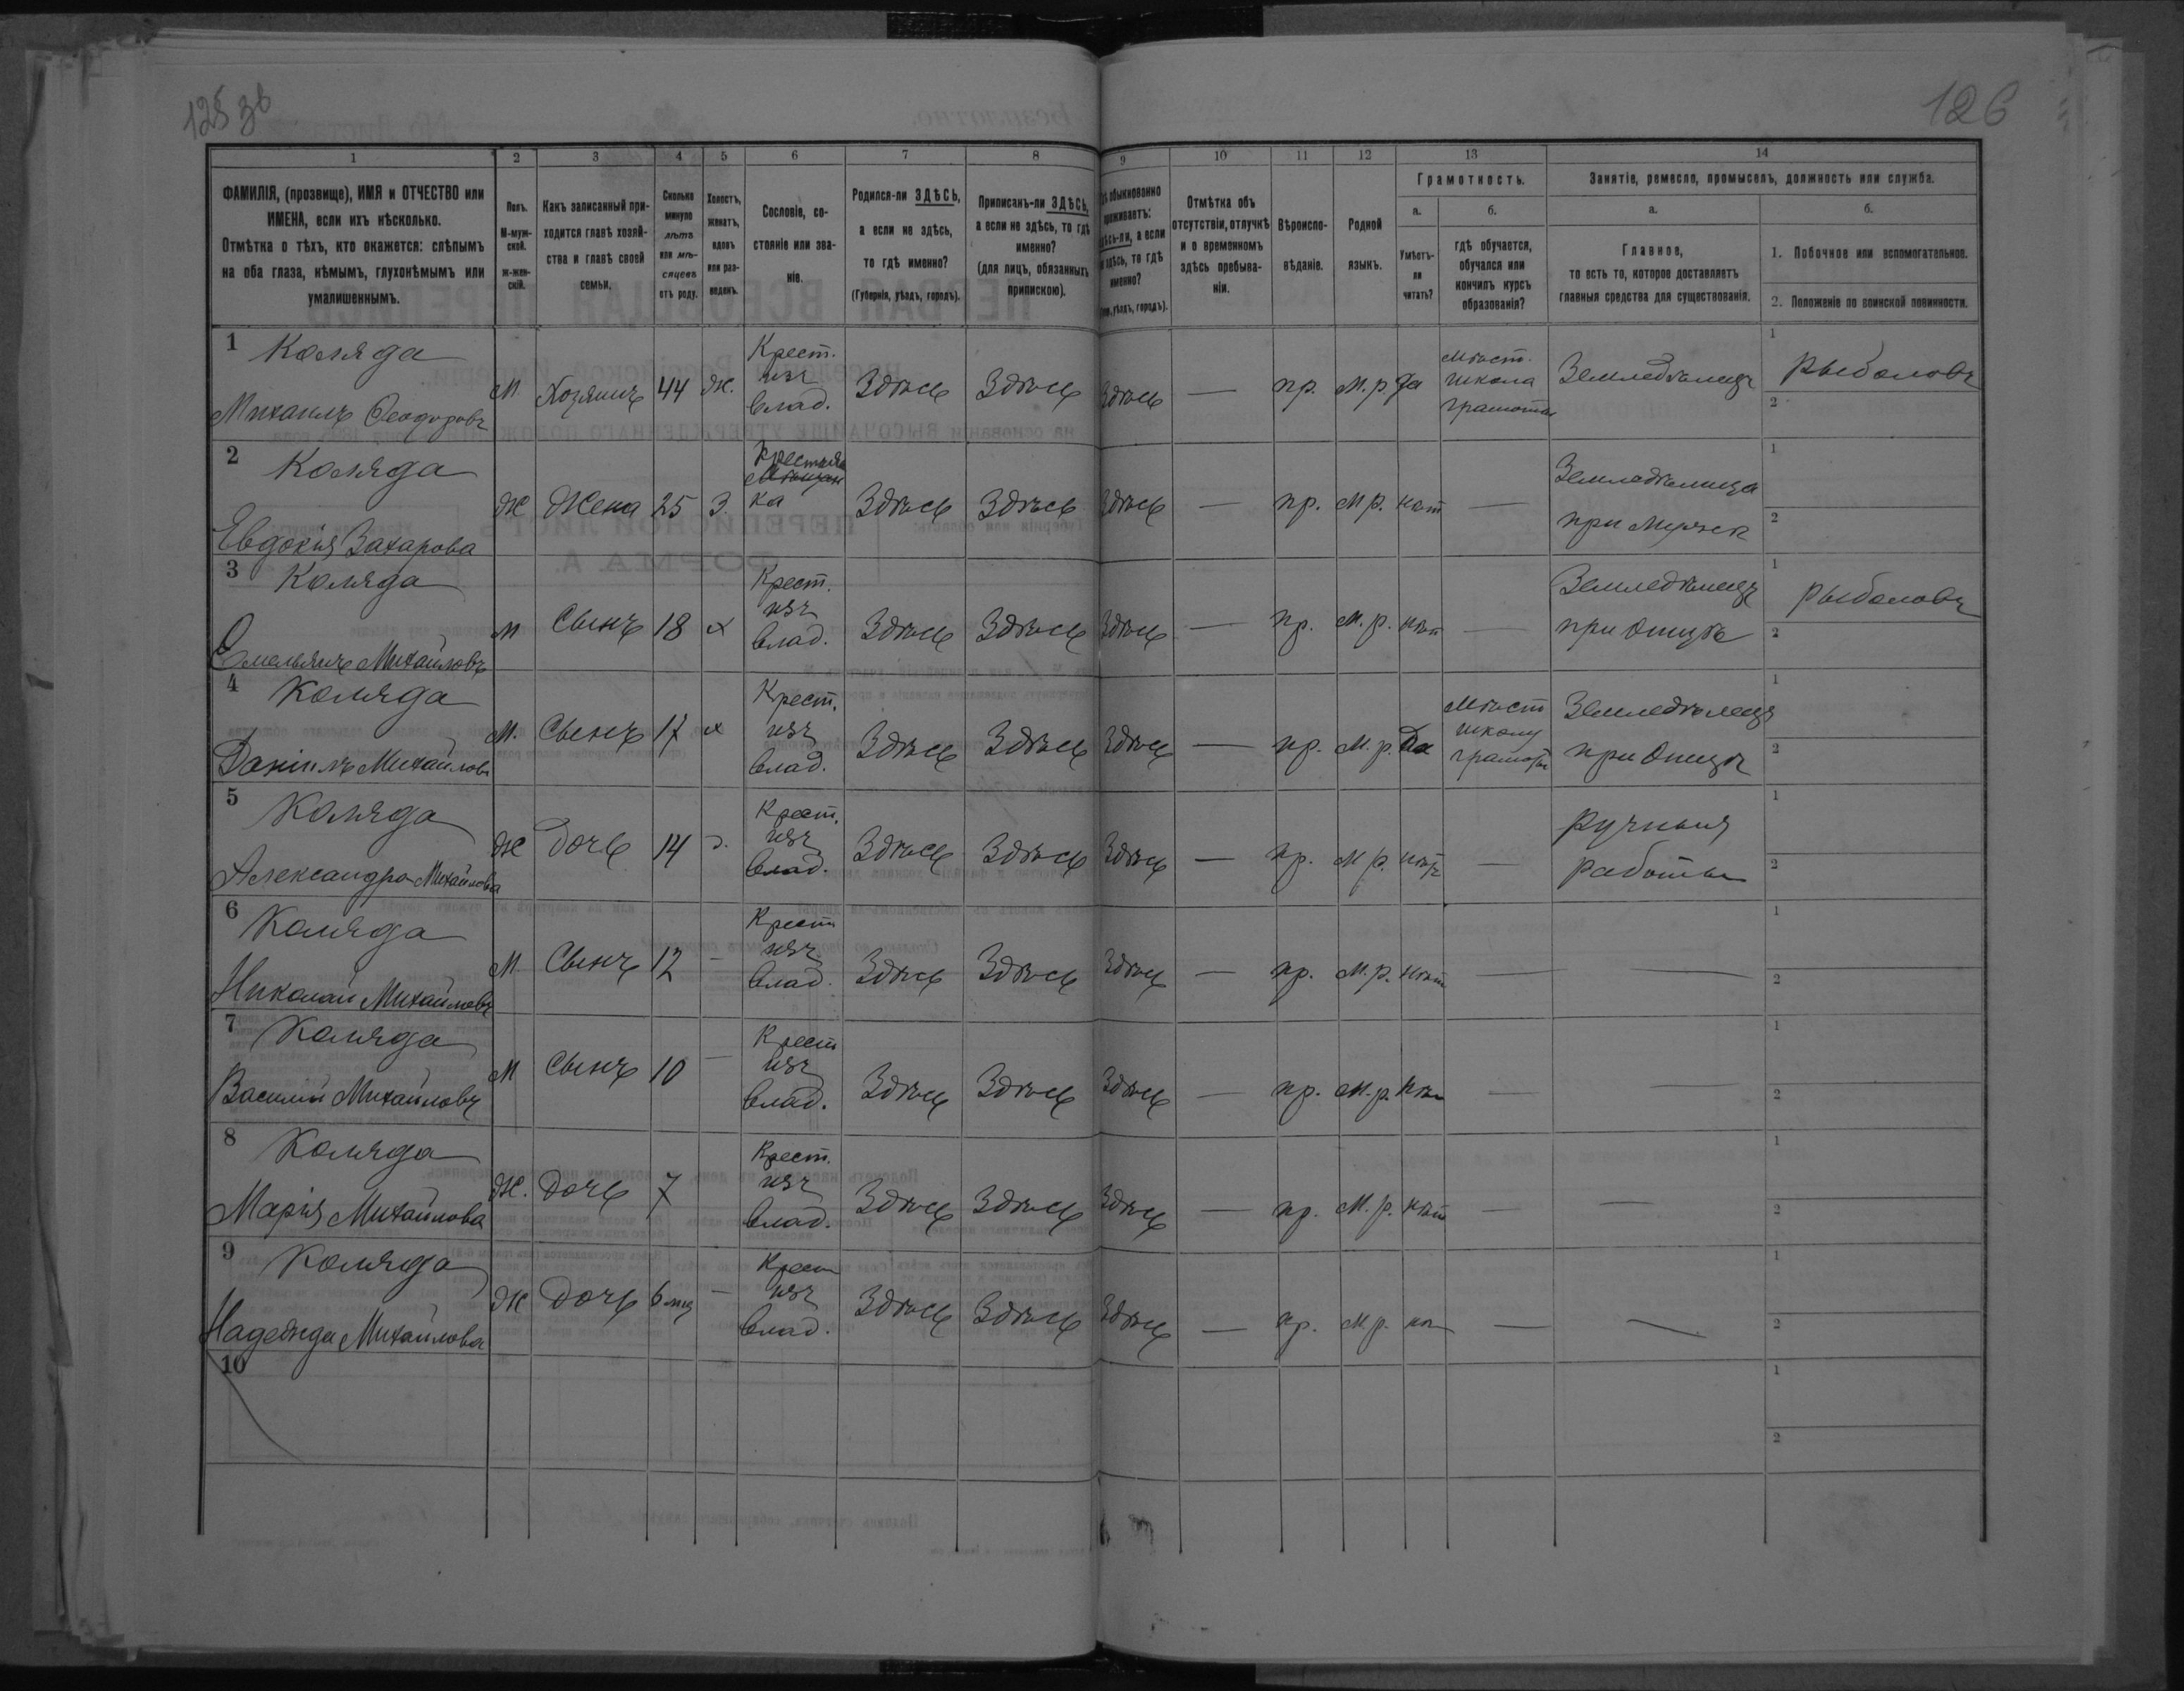 125 зв
126
1
2
3
4
5
6
7
8
9
10
11
12
13
14
ФАМИЛІЯ, (прозвище), ИМЯ и ОТЧЕСТВО или
ИМЕНА, если ихъ нѣсколько.
Отмѣтка о тѣхъ, кто окажется: слѣпымъ
на оба глаза, нѣмымъ, глухонѣмымъ или
умалишеннымъ.
Полъ.
М-муж-
ской.
ж-жен-
скій.
Какъ записанный при-
ходится главѣ хозяй-
ства и главѣ своей
семьи.
Сколько
минуло
лѣтъ
или мѣ-
сяцевъ
отъ роду.
Холостъ,
женатъ,
вдовъ
или раз-
веденъ.
Сословіе, со-
стояніе или зва-
ніе.
Родился-ли ЗДѢСЬ,
а если не здѣсь,
то гдѣ именно?
(Губернія, уѣздъ, городъ).
Приписанъ-ли ЗДѢСЬ,
а если не здѣсь, то гдѣ
именно?
(для лицъ, обязанныхъ
припискою).
обыкновенно
проживаетъ:
здѣсь-ли, а если
не здѣсь, то гдѣ
именно?
уѣздъ, городъ).
Отмѣтка объ
отсутствіи, отлучкѣ
и о временномъ
здѣсь пребыва-
ніи.
Вѣроиспо-
вѣданіе.
Родной
языкъ.
Грамотность.
а.
б.
Умѣетъ-
ли
читать?
гдѣ обучается,
обучался или
кончилъ курсъ
образованія?
Занятіе, ремесло, промыселъ, должность или служба.
а.
б.
Главное,
то есть то, которое доставляетъ
главныя средства для существованія.
1. Побочное или вспомогательное.
2. Положеніе по воинской повинности.
1 Коляда
Михаилъ Феодоровъ
М. Хозяинъ 44 Ж.
Крест.
изъ
влад.
Здѣсь Здѣсь Здѣсь — пр. М.р. Да
мѣст.
школа
грамоты
Земледѣлецъ
1 Рыболовъ
2
2 Коляда
Евдокія Захарова
Ж Жена 25 З.
Крестьян
ка
Здѣсь Здѣсь Здѣсь — пр. М.р. нѣт —
Земледѣлица
при мужѣ
1
2
3 Коляда
Емельянъ Михайловъ
М Сынъ 18 х
Крест.
изъ
влад.
Здѣсь Здѣсь Здѣсь — пр. М.р. нѣт —
Земледѣлецъ
при отцѣ
1 Рыболовъ
2
4 Коляда
Даніилъ Михайловъ
М. Сынъ 17 х
Крест.
изъ
влад.
Здѣсь Здѣсь Здѣсь — пр. М.р. Да
мѣст
школу
грамоты
Земледѣлецъ
при отцѣ
1
2
5 Коляда
Александра Михайлова
Ж Дочь 14
Крест.
изъ
влад.
Здѣсь Здѣсь Здѣсь — пр. М.р. нѣтъ —
Ручныя
работы
1
2
6 Коляда
Николай Михайловъ
М Сынъ 12 —
Крест
изъ
влад.
Здѣсь Здѣсь Здѣсь — пр. М.р. нѣт — —
1
2
7 Коляда
Василій Михайловъ
М Сынъ 10 —
Крест
изъ
влад.
Здѣсь Здѣсь Здѣсь — пр. М.р. нѣт — —
1
2
8 Коляда
Марія Михайлова
Ж. Дочь 7
Крест.
изъ
влад.
Здѣсь Здѣсь Здѣсь — пр. М.р. нѣт — —
1
2
9 Коляда
Надежда Михайлова
Ж Дочь 6 мц —
Крест
изъ
влад.
Здѣсь Здѣсь Здѣсь — пр. М.р. нѣ — —
1
2
10
1
2